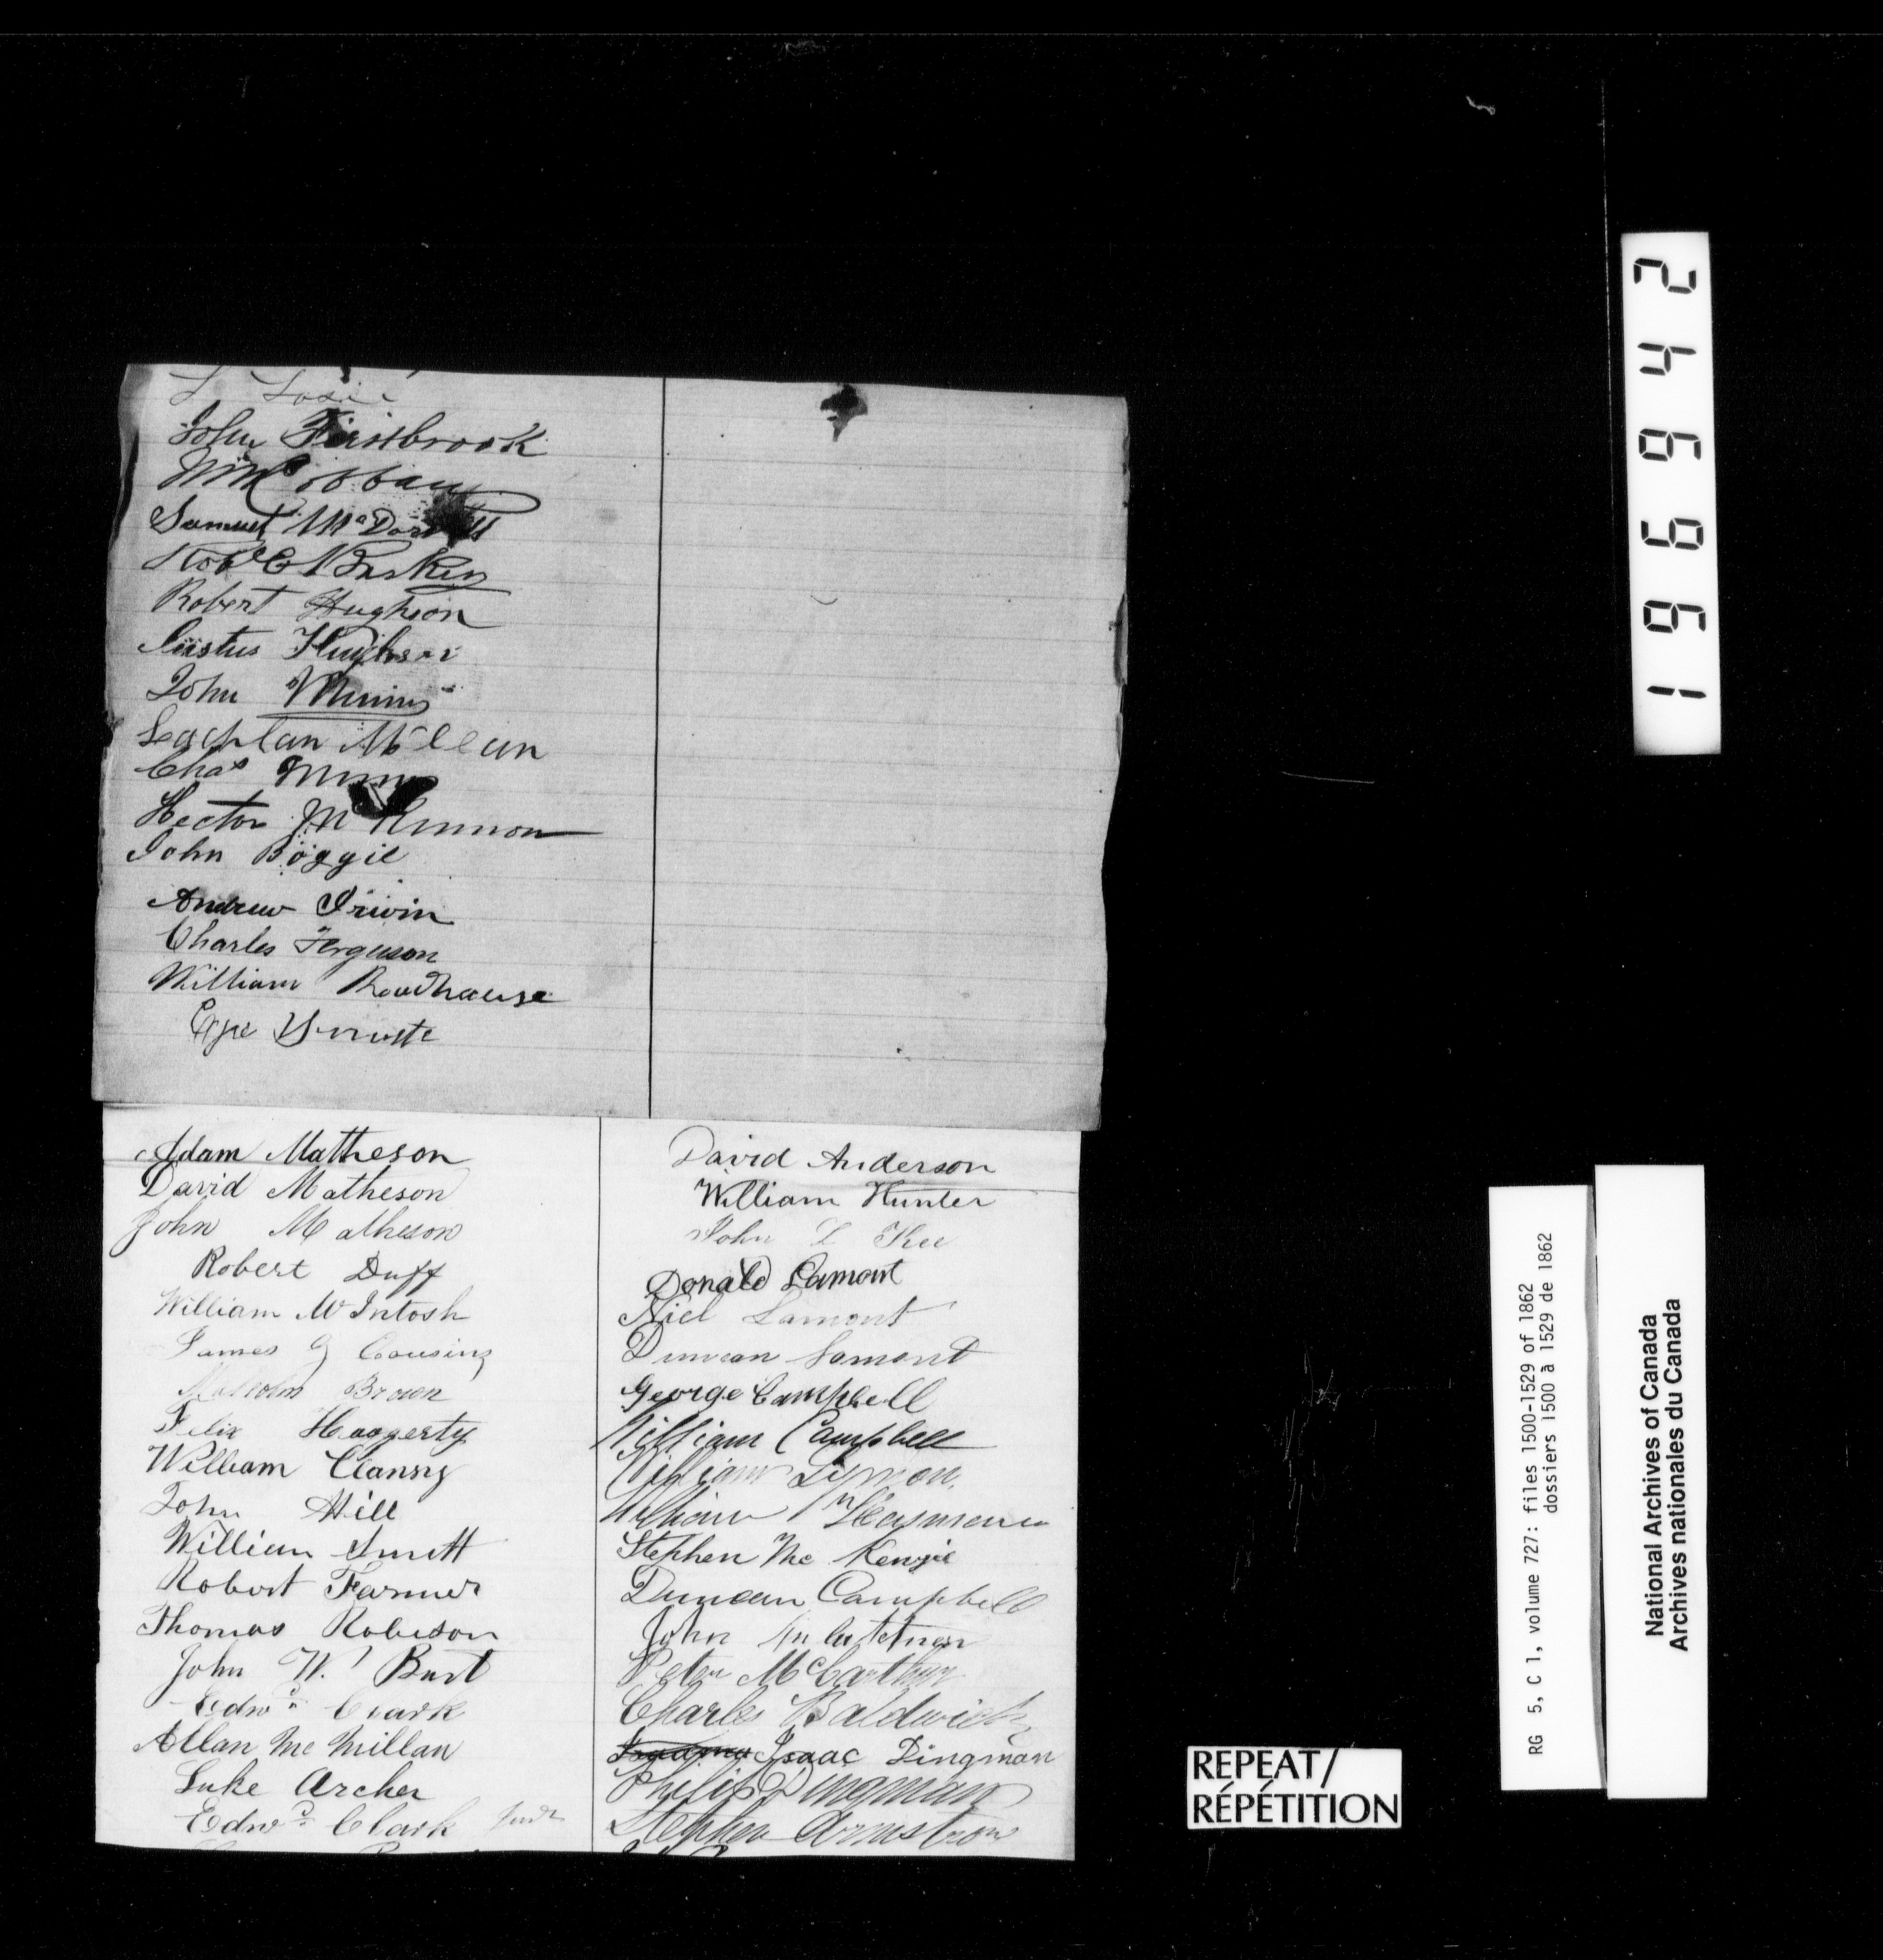 John Firstbrook
Samuel McDonald
Robert Hughson
Justus Hughson
John
Lachlan McLean
Chas
Hector McKinnon
John Boggie
Andrew Irwin
Charles Ferguson
William Roadhouse
Adam Matheson
David Matheson
John Matheson
Robert Duff
William McIntosh
James G Cousins
Malcolm Brown
Felix Haggerty
William Clansy
John Hill
William Smett
Robert Farmer
Thomas Robeson
John W. Burt
Edwd Clark
Allan Mc Millan
Luke Archer
Edwd Clark Junr
David Anderson
William Hunter
John L Kee
Donald Lamont
Niel Lamont
Duncan Lamont
George Campbell
William Campbell
William
William
Stephen Mc Kenzie
Duncan Campbell
John
Peter McCarthur
Charles Baldwick
Isaac Dingman
Philip Dingman
Stephen Armstrong
196942
RG 5, C 1, volume 727: files 1500-1529 of 1862
dossiers 1500 à 1529 de 1862
National Archives of Canada
Archives nationales du Canada
REPEAT/
RÉPÉTITION